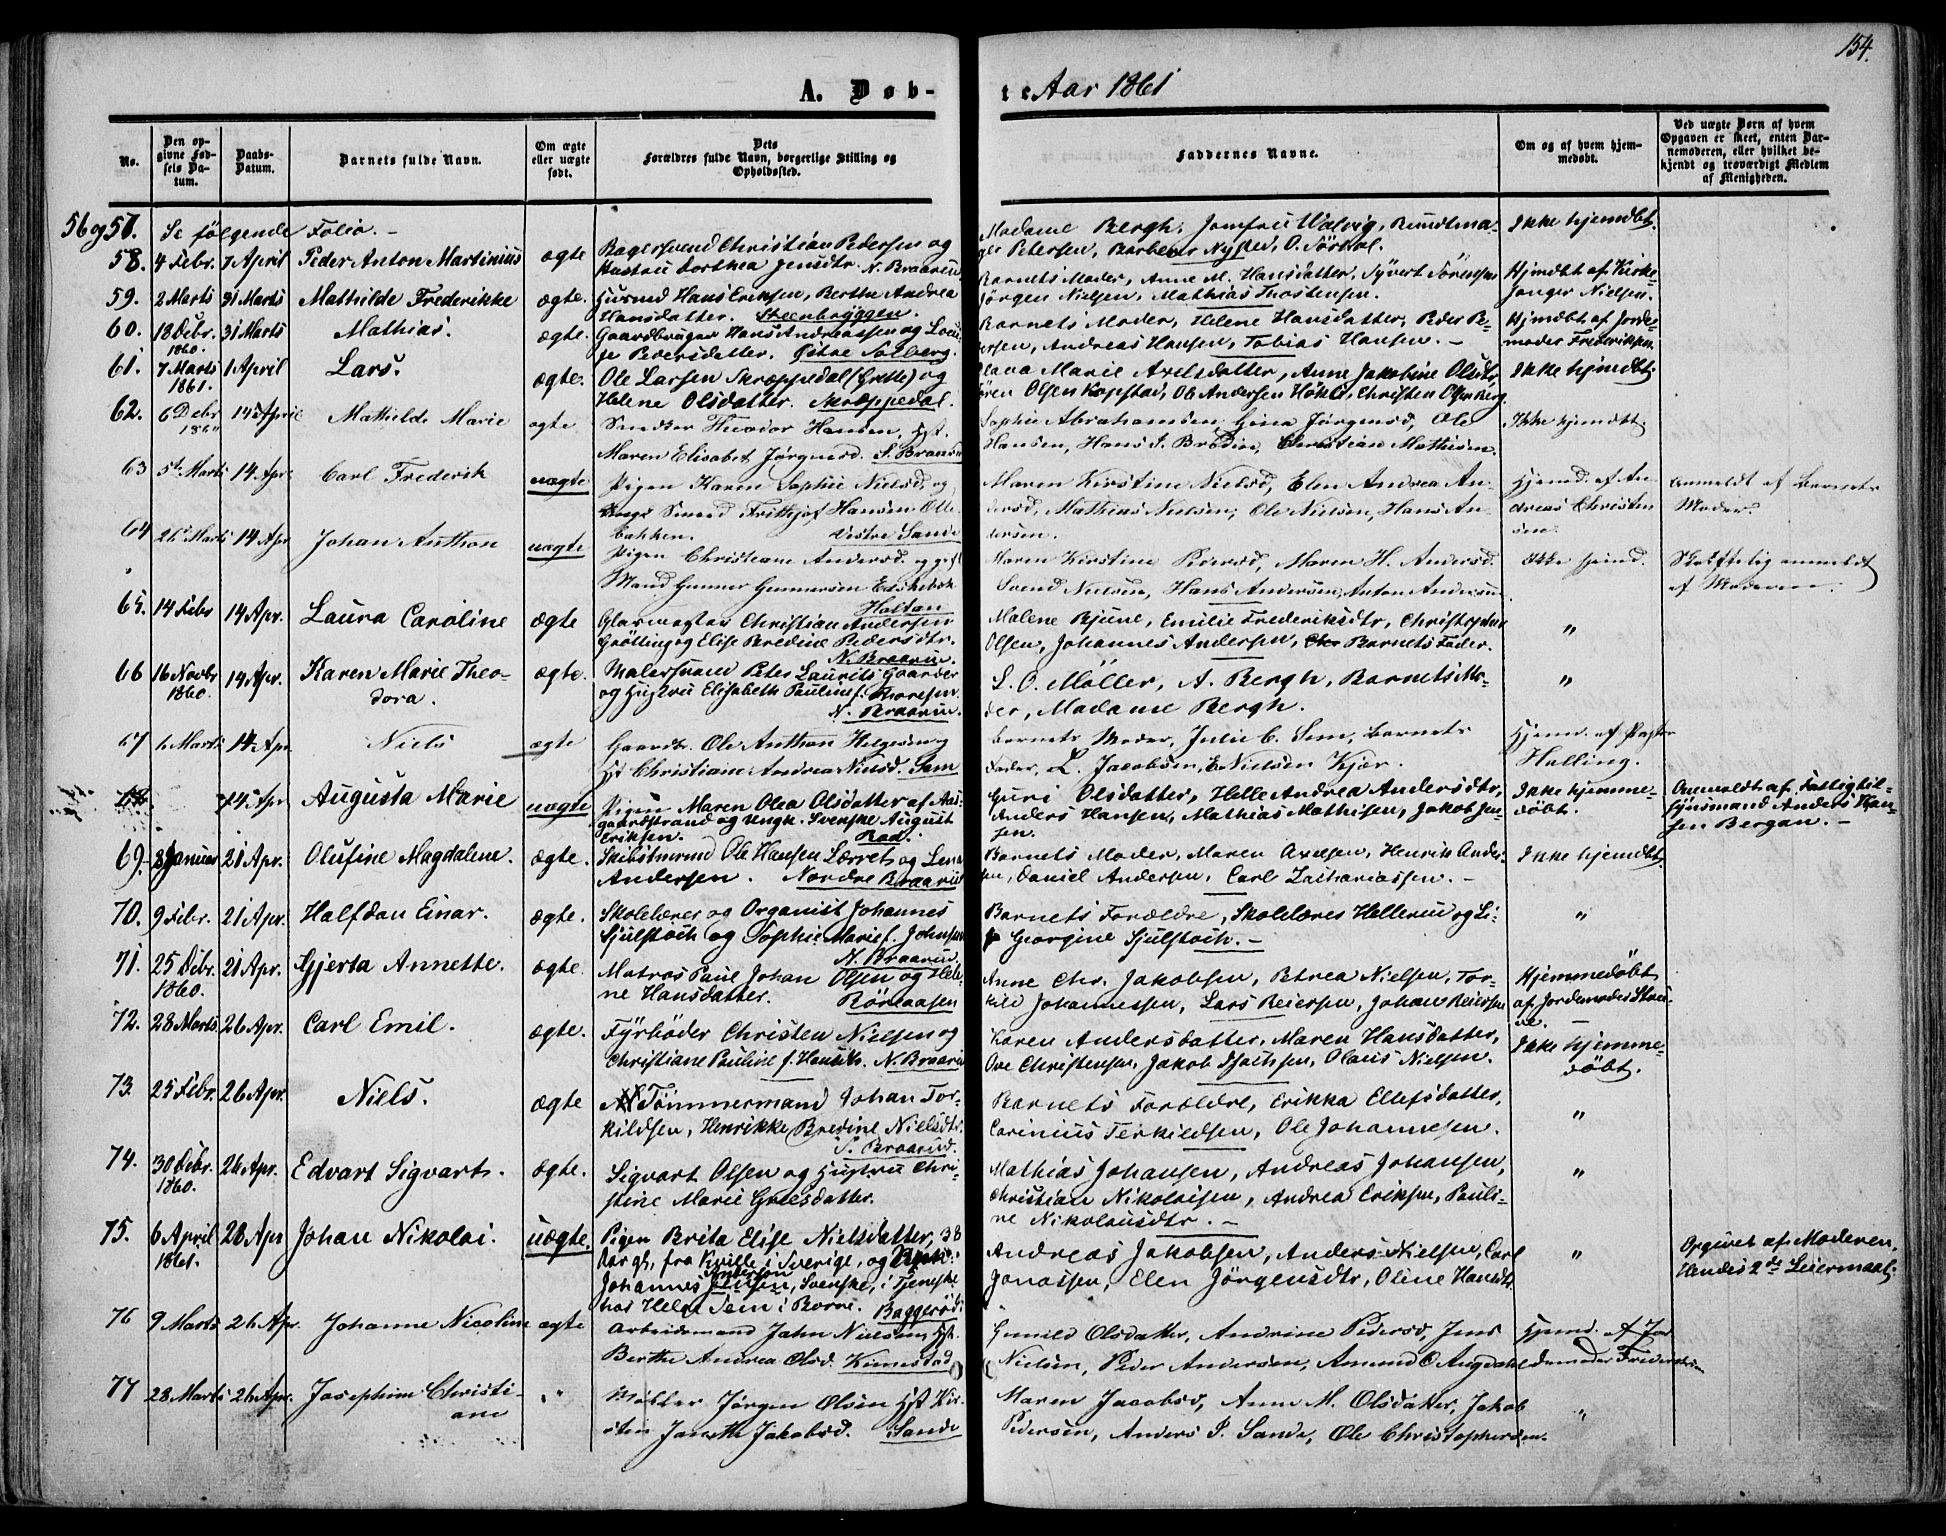 154.
A. Døb-
te Aar 1861
No.
Den op-
givne Fød-
sels Da-
tum.
Daabs-
Datum.
Barnets fulde Navn.
Om ægte
eller uægte
født.
Dets
Forældres fulde Navn, borgerlige Stilling og
Opholdssted.
Faddernes Navne.
Om og af hvem hjem-
medøbt.
Ved uægte Børn af hvem
Opgaven er skeet, enten Bar-
nemoderen, eller hvilket be-
kjendt og troværdigt Medlem
af Menigheden.
56 og 57. Se følgende Folio. -
58. 4 Febr. 7 April Peder Anton Martinius ægte
Bagersvend Christian Pedersen og
Hustru Dorthea Jensdtr. N. Braarud
Madame Bergh, Jomfru Walvig, Bundtma-
ger Petersen, Barbeer O. Sørdal.
Ikke hjemdbt.
59. 2 Marts 31 Marts Mathilde Frederikke ægte.
Husmd Hans Eriksen, Berthe Andrea
Hansdatter. Steenbryggen.
Barnets Moder, Anne M. Hansdatter, Syvert Sörensen
Jørgen Nielsen, Mathias Thostensen.
Hjmdbt af Kirke-
sanger Nielsen.
60. 18 Debr. 1860. 31 Marts Mathias. ægte.
Gaardbruger Hans Andreassen og Loui-
se Pedersdatter. Østre Solberg.
Barnets Moder, Helene Hansdatter, Peder Pe-
dersen, Andreas Hansen, Tobias Hansen. -
Hjmdbt af Jorde-
moder Frederiksen
61. 7 Marts 1861. 1 April Lars. ægte.
Ole Larsen Skræppedal (Grette) og
Helene Olsdatter. Skræppedal.
Marie Axelsdatter, Anne Jakobine Olsdtr,
Sören Olsen Kopstad, Ole Andersen Christen Olsen Berg.
Ikke hjemdbt.
62. 6 Debr 1860 14 April Mathilde Marie ægte
Snedker Theodor Hansen, Hst.
Maren Elisabet Jørgensd. S. Braarud
Sophie Abrahamsen, Gina Jørgensd, Ole
Hansen, Hans S. Bredin, Christian Mathisen.
Ikke hjemdbt.
63 5t Marts 14 Apr. Carl Frederik uægte
Pigen Karen Sophie Nielsd, og
Svend Frithjof Hansen Olle-
bakken. Vestre Sande
Maren Kirstine Nielsd, Elen Andrea An-
dersd, Mathias Nielsen, Ole Nielsen, Hans An-
dersen.
Hjemd. af An-
dreas Christen
sen.
Anmeldt af Barnets
Moder.
64 26 Marts 14 Apr Johan Anthon uægte
Pigen Christiane Andersd. og gift
Mand Gunner Gunnersen
Holtan
Maren Kirstine Pedersd, Maren H. Andersd.
Svend Nielsen, Hans Andersen, Anton Andersen
Ikke hjemd.
Skriftelig anmeldt
af Moderen.
65. 14 Febr 14 Apr. Laura Caroline ægte
Glasmager Christian Andersen
Grötting og Elise Bredine Pedersdtr.
N. Braarud.
Malene Bjune, Emilie Frederiksdtr, Christopher
Olsen, Johannes Andersen, Barnets Fader.
"
66 16 Novbr 1860. 14 Apr. Karen Marie Theo-
dora. ægte.
Malersvend Peter Laurits Gaarder
og Hustru Elisabeth Pauline f. Thoresen.
N. Braarud.
L. O. Möller, A. Bergh, Barnets Mo-
der, Madame Bergh.
"
67 6 Marts 14 Apr Niels ægte
Gaardbr. Ole Anthon Helgesen og
Hst Christiane Andrea Nielsd. Sem
Barnets Moder, Julie C. Sem, Barnets
Fader, L. Jacobsen, E. Nielsen Kjær.
Hjemd. af Pastor
Halling.
68. 14 Apr Augusta Marie uægte
Pigen Maren Olea Olsdatter af Aas-
gaardstrand og ungk. Svenske August
Eriksen. Rød.
Guri Olsdatter, Helle Andrea Andersdtr,
Anders Hansen, Mathias Mathisen, Jakob Jen-
sen.
Ikke hjemme-
döbt.
Anmeldt af Fattigtil-
synsmand Anders Han-
sen Bergan. -
69. 8 Januar 21 Apr. Olufine Magdalene. ægte.
Skibstmrmd Ole Hansen Lærret og Lena
Andersen. Nordre Braarud
Barnets Moder, Maren Axelsen, Henrik Ander-
sen, Daniel Andersen, Carl Zachariassen. -
Ikke hjemdbt.
70. 9 Febr. 21 Apr. Halfdan Einar. ægte.
Skolelærer og Organist Johannes
Sjulstoch og Sophie Marie f. Johnsen
N. Braarud.
Barnets Forældre, Skolelærer Hellerud og
Georgine Sjulstoch. -
"
71. 25 Debr. 1860. 21 Apr. Gjerta Annette. ægte.
Matros Paul Johan Olsen og Hele-
ne Hansdatter. Röreaasen
Anne Chr. Jakobsen, Petrea Nielsen, Tor-
kild Johannessen, Lars Reiersen, Johan Reiersen
Hjemmedöbt
af Jordemoder
72. 28 Marts. 26 Apr. Carl Emil. ægte.
Fyrböder Christen Nielsen og
Christiane Pauline f. Hansdtr. N. Braarud
Karen Andersdatter, Maren Hansdatter,
Ove Christensen, Jakob Isachsen, Olaus Nielsen.
Ikke hjemme-
döbt.
73. 25 Febr. 26 Apr. Niels. ægte
Tömmermand Johan Tor-
kildsen, Henrikke Bredine Nielsdtr.
S. Braarud.
Barnets Forældre, Erikka Ellefsdatter,
Carinius Terkildsen, Ole Johannesen.
"
74. 30 Debr. 1860. 26 Apr. Edvart Sigvart. ægte.
Sigvart Olsen og Hustru Chri-
stine Marie Greesdatter.
Mathias Johansen, Andreas Johansen,
Christian Nikolaisen, Andrea Eriksen, Pauli-
ne Nikolausdtr. -
"
75. 6 April 1861. 28 Apr Johan Nikolai. uægte.
Pigen Brita Elise Nielsdatter, 38
Aar gl., fra Kville i Sverige, og
Johannes Andersen, Svenske, i Tjeneste
hos Helge Sem i Borre. Baggeröd.
Andreas Jakobsen, Anders Nielsen, Carl
Jonassen, Elen Jörgensdtr, Oline Hansdtr.
"
Opgivet af Moderen.
Hendes 2det Leiermaal.
76 9 Marts 26 Apr. Johanne Nicoline ægte
Arbeidsmand John Nielsen, Hst.
Berthe Andrea Olsd. Kimestad
Gunild Olsdatter, Andrine Pedersd, Jens
Nielsen, Peder Andersen, Amund O. Augedahl
Hjemd. af Jor
demoder Frederiksen
77 28 Marts 26 Apr. Josephine Christi-
ane "
Møller Jørgen Olsen Hst Kir-
sten Janette Jakobsd. Sande
Maren Jacobsd, Anne M. Olsdatter, Jakob
Pedersen, Anders P. Sande, Ole Christophersen.
"